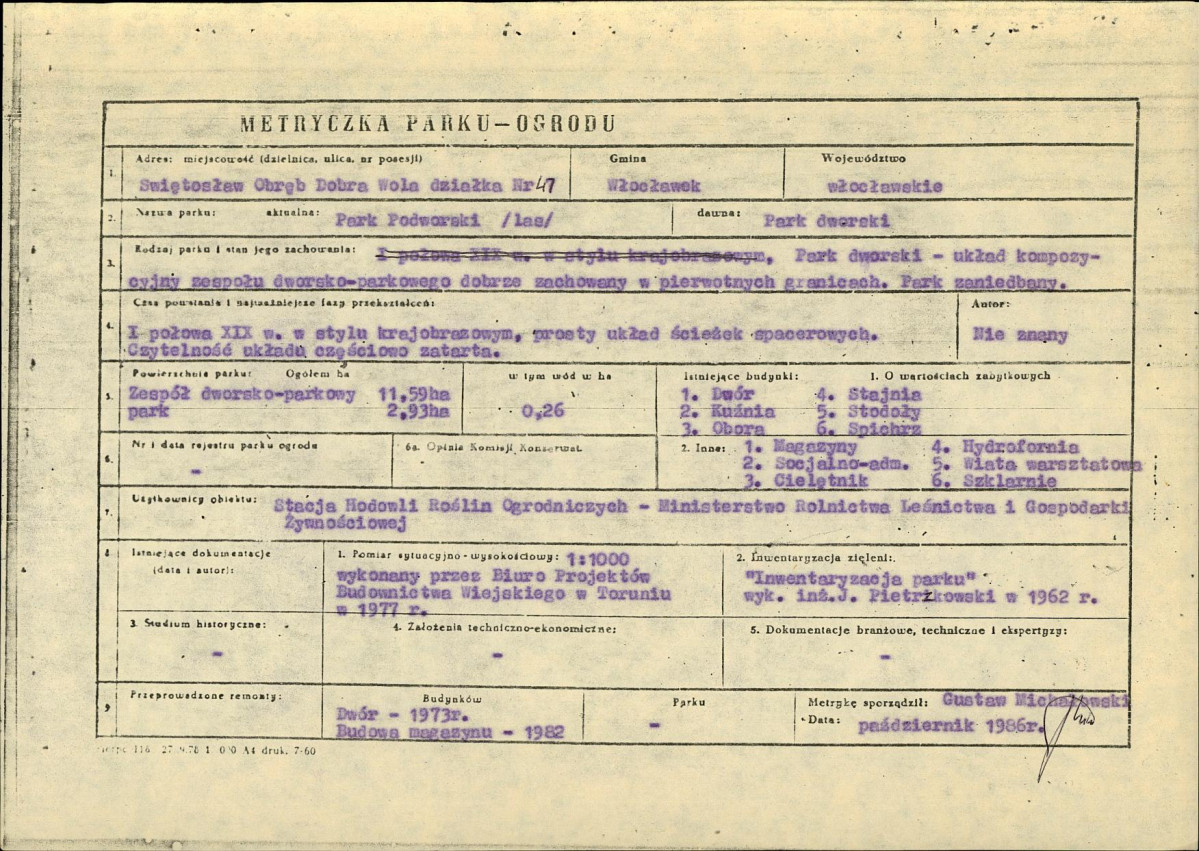 METRYCZKA PARKU-OGRODU
1. Adres: miejscowość (dzielnica, ulica, nr posesji) Gmina Województwo
Swiętosław Obręb Dobra Wola działka Nr 47 Włocławek włocławskie
2. Nazwa parku: aktualna: Park Podworski /las/ dawna: Park dworski
3. Rodzaj parku i stan jego zachowania: I połowa XIX w. w stylu krajobrazowym, Park dworski - układ kompozy-
cyjny zespołu dworsko-parkowego dobrze zachowany w pierwotnych granicach. Park zaniedbany.
4. Czas powstania i najważniejsze fazy przekształceń: Autor:
I połowa XIX w. w stylu krajobrazowym, prosty układ ścieżek spacerowych. Nie znany
Czytelność układu częściowo zatarta.
5. Powierzchnia parku: Ogółem ha w tym wód w ha Istniejące budynki: 1. O wartościach zabytkowych
Zespół dworsko-parkowy 11,59ha 1. Dwór 4. Stajnia
park 2,93ha 0,26 2. Kuźnia 5. Stodoły
3. Obora 6. Spichrz
6. Nr i data rejestru parku ogrodu 6a. Opinia Komisji Konserwat. 2. Inne: 1. Magazyny 4. Hydrofornia
- 2. Socjalno-adm. 5. Wiata warsztatowa
3. Cielętnik 6. Szklarnie
7. Użytkownicy obiektu: Stacja Hodowli Roślin Ogrodniczych - Ministerstwo Rolnictwa Leśnictwa i Gospodarki
Żywnościowej
8 Istniejące dokumentacje 1. Pomiar sytuacyjno-wysokościowy: 1:1000 2. Inwentaryzacja zieleni:
(data i autor): wykonany przez Biuro Projektów "Inwentaryzacja parku"
Budownictwa Wiejskiego w Toruniu wyk. inż.J. Pietrzkowski w 1962 r.
w 1977 r.
3. Studium historyczne: 4. Założenia techniczno-ekonomiczne: 5. Dokumentacje branżowe, techniczne i ekspertyzy:
- - -
9 Przeprowadzone remonty: Budynków Parku Metrykę sporządził: Gustaw Michałowski
Dwór - 1973r. - Data: październik 1986r.
Budowa magazynu - 1982
116 27.9.78 1 000 A4 druk. 7-60